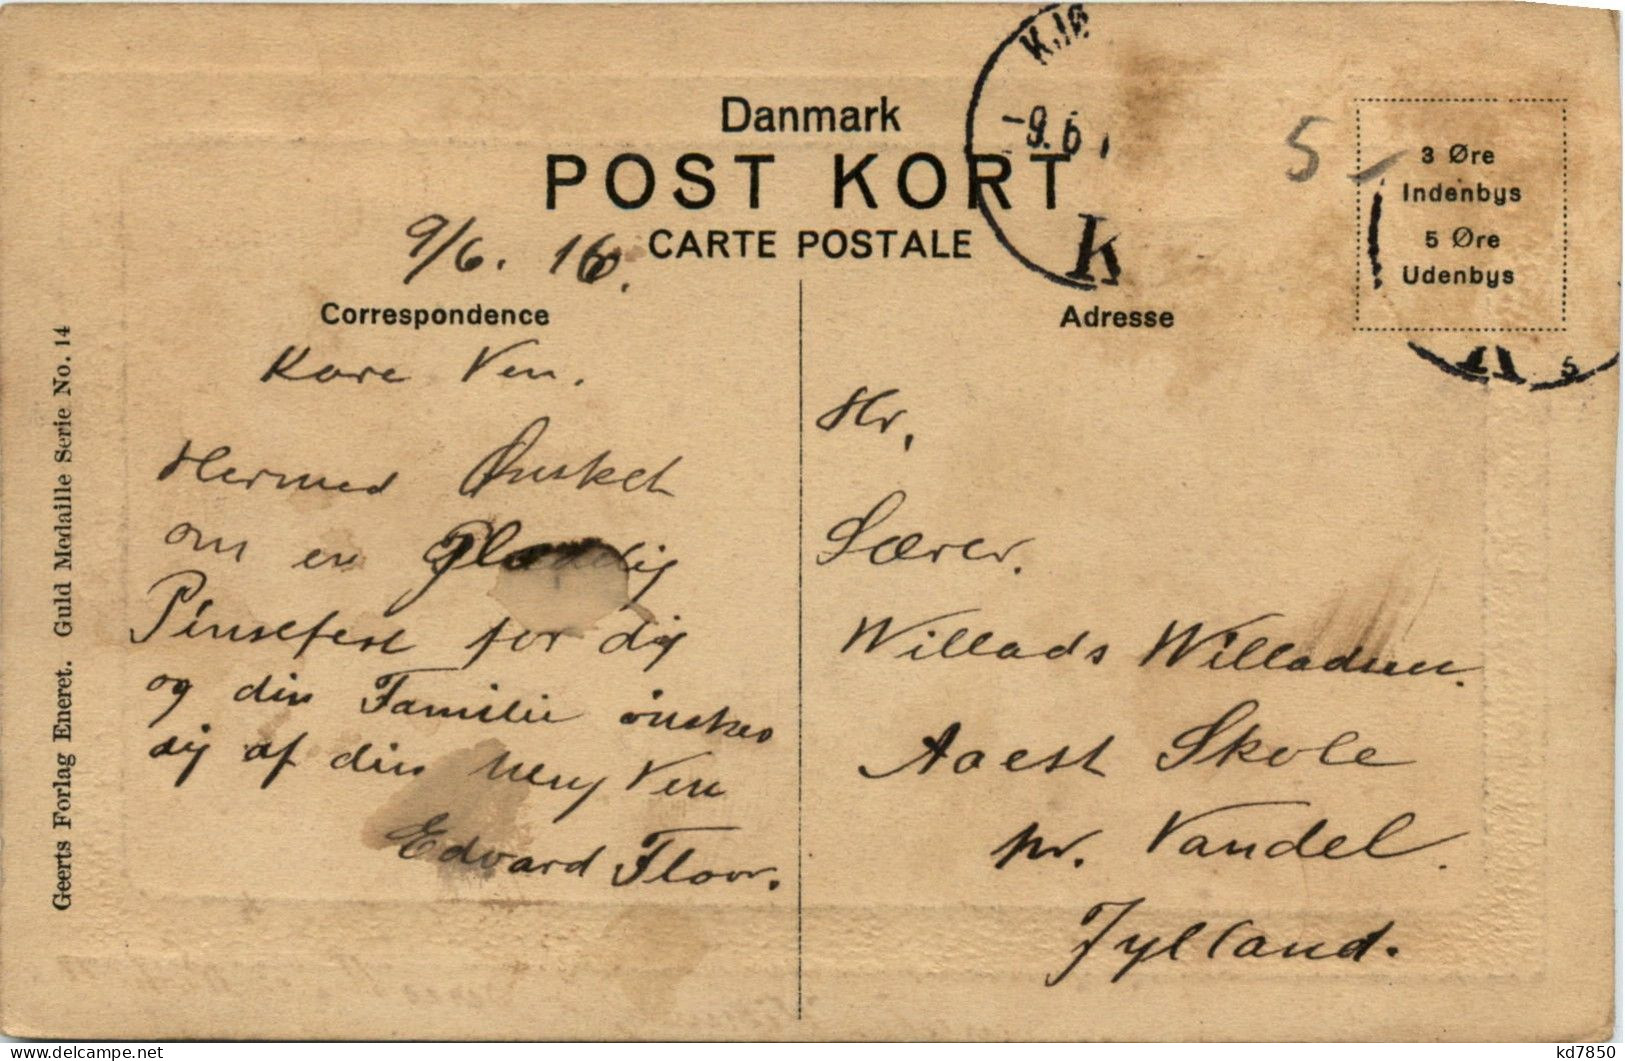 Danmark
POST KORT
CARTE POSTALE
KJØ
-9.6
K
5
3 Øre
Indenbys
5 Øre
Udenbys
5
9/6. 16.
Correspondence
Kære Ven.
Hermed Ønsket
om en Glædig
Pinsefest for dig
og din Familie önskes
dig af din Ven
Edvard Floor.
Adresse
Hr,
Lærer.
Willads Willadsen.
Aaest Skole
pr. Vandel.
Jylland.
Geerts Forlag Eneret. Guld Medaille Serie No. 14
kd7850